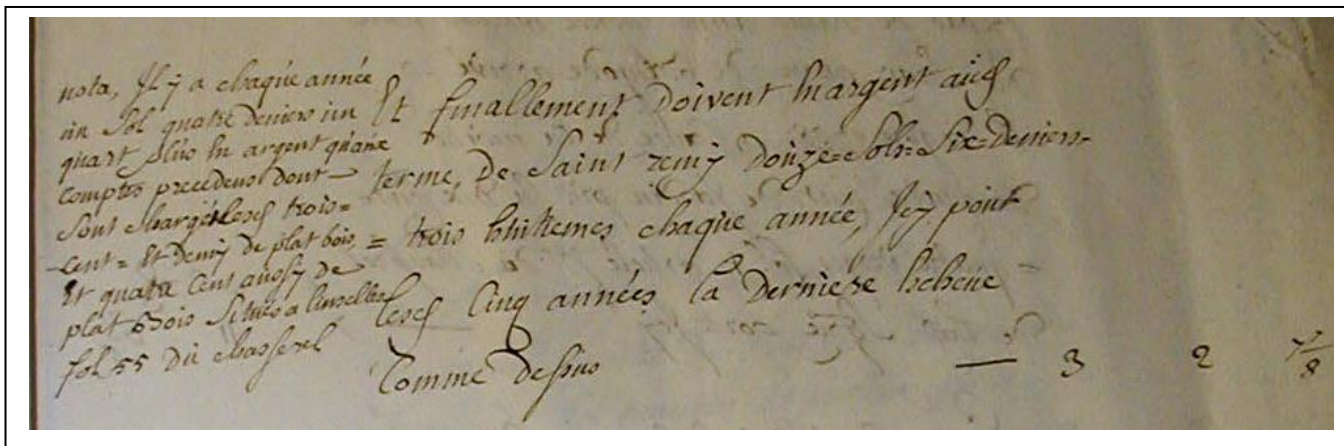 nota, Il y a chaque année
un sol quatre deniers un
quart plus en argent qu'aux
comptes precedens dont
sont chargé lesd trois=
cent = Et demy de plat bois,
Et quatre cent aussy de
plat Bois situés a linselles
fol 55 du chasserel
Et finallement Doivent En argent aud
terme, De Saint remy Douze=sols=Six=Deniers-
= trois huittiemes chaque année, Icy pour
lesd Cinq années la Derniere Escheüe
Comme Dessus — 3 2 7/8